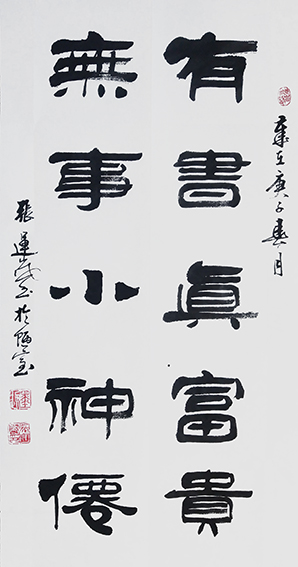 歲在庚子春月
有書眞富貴
無事小神僊
張運書於室